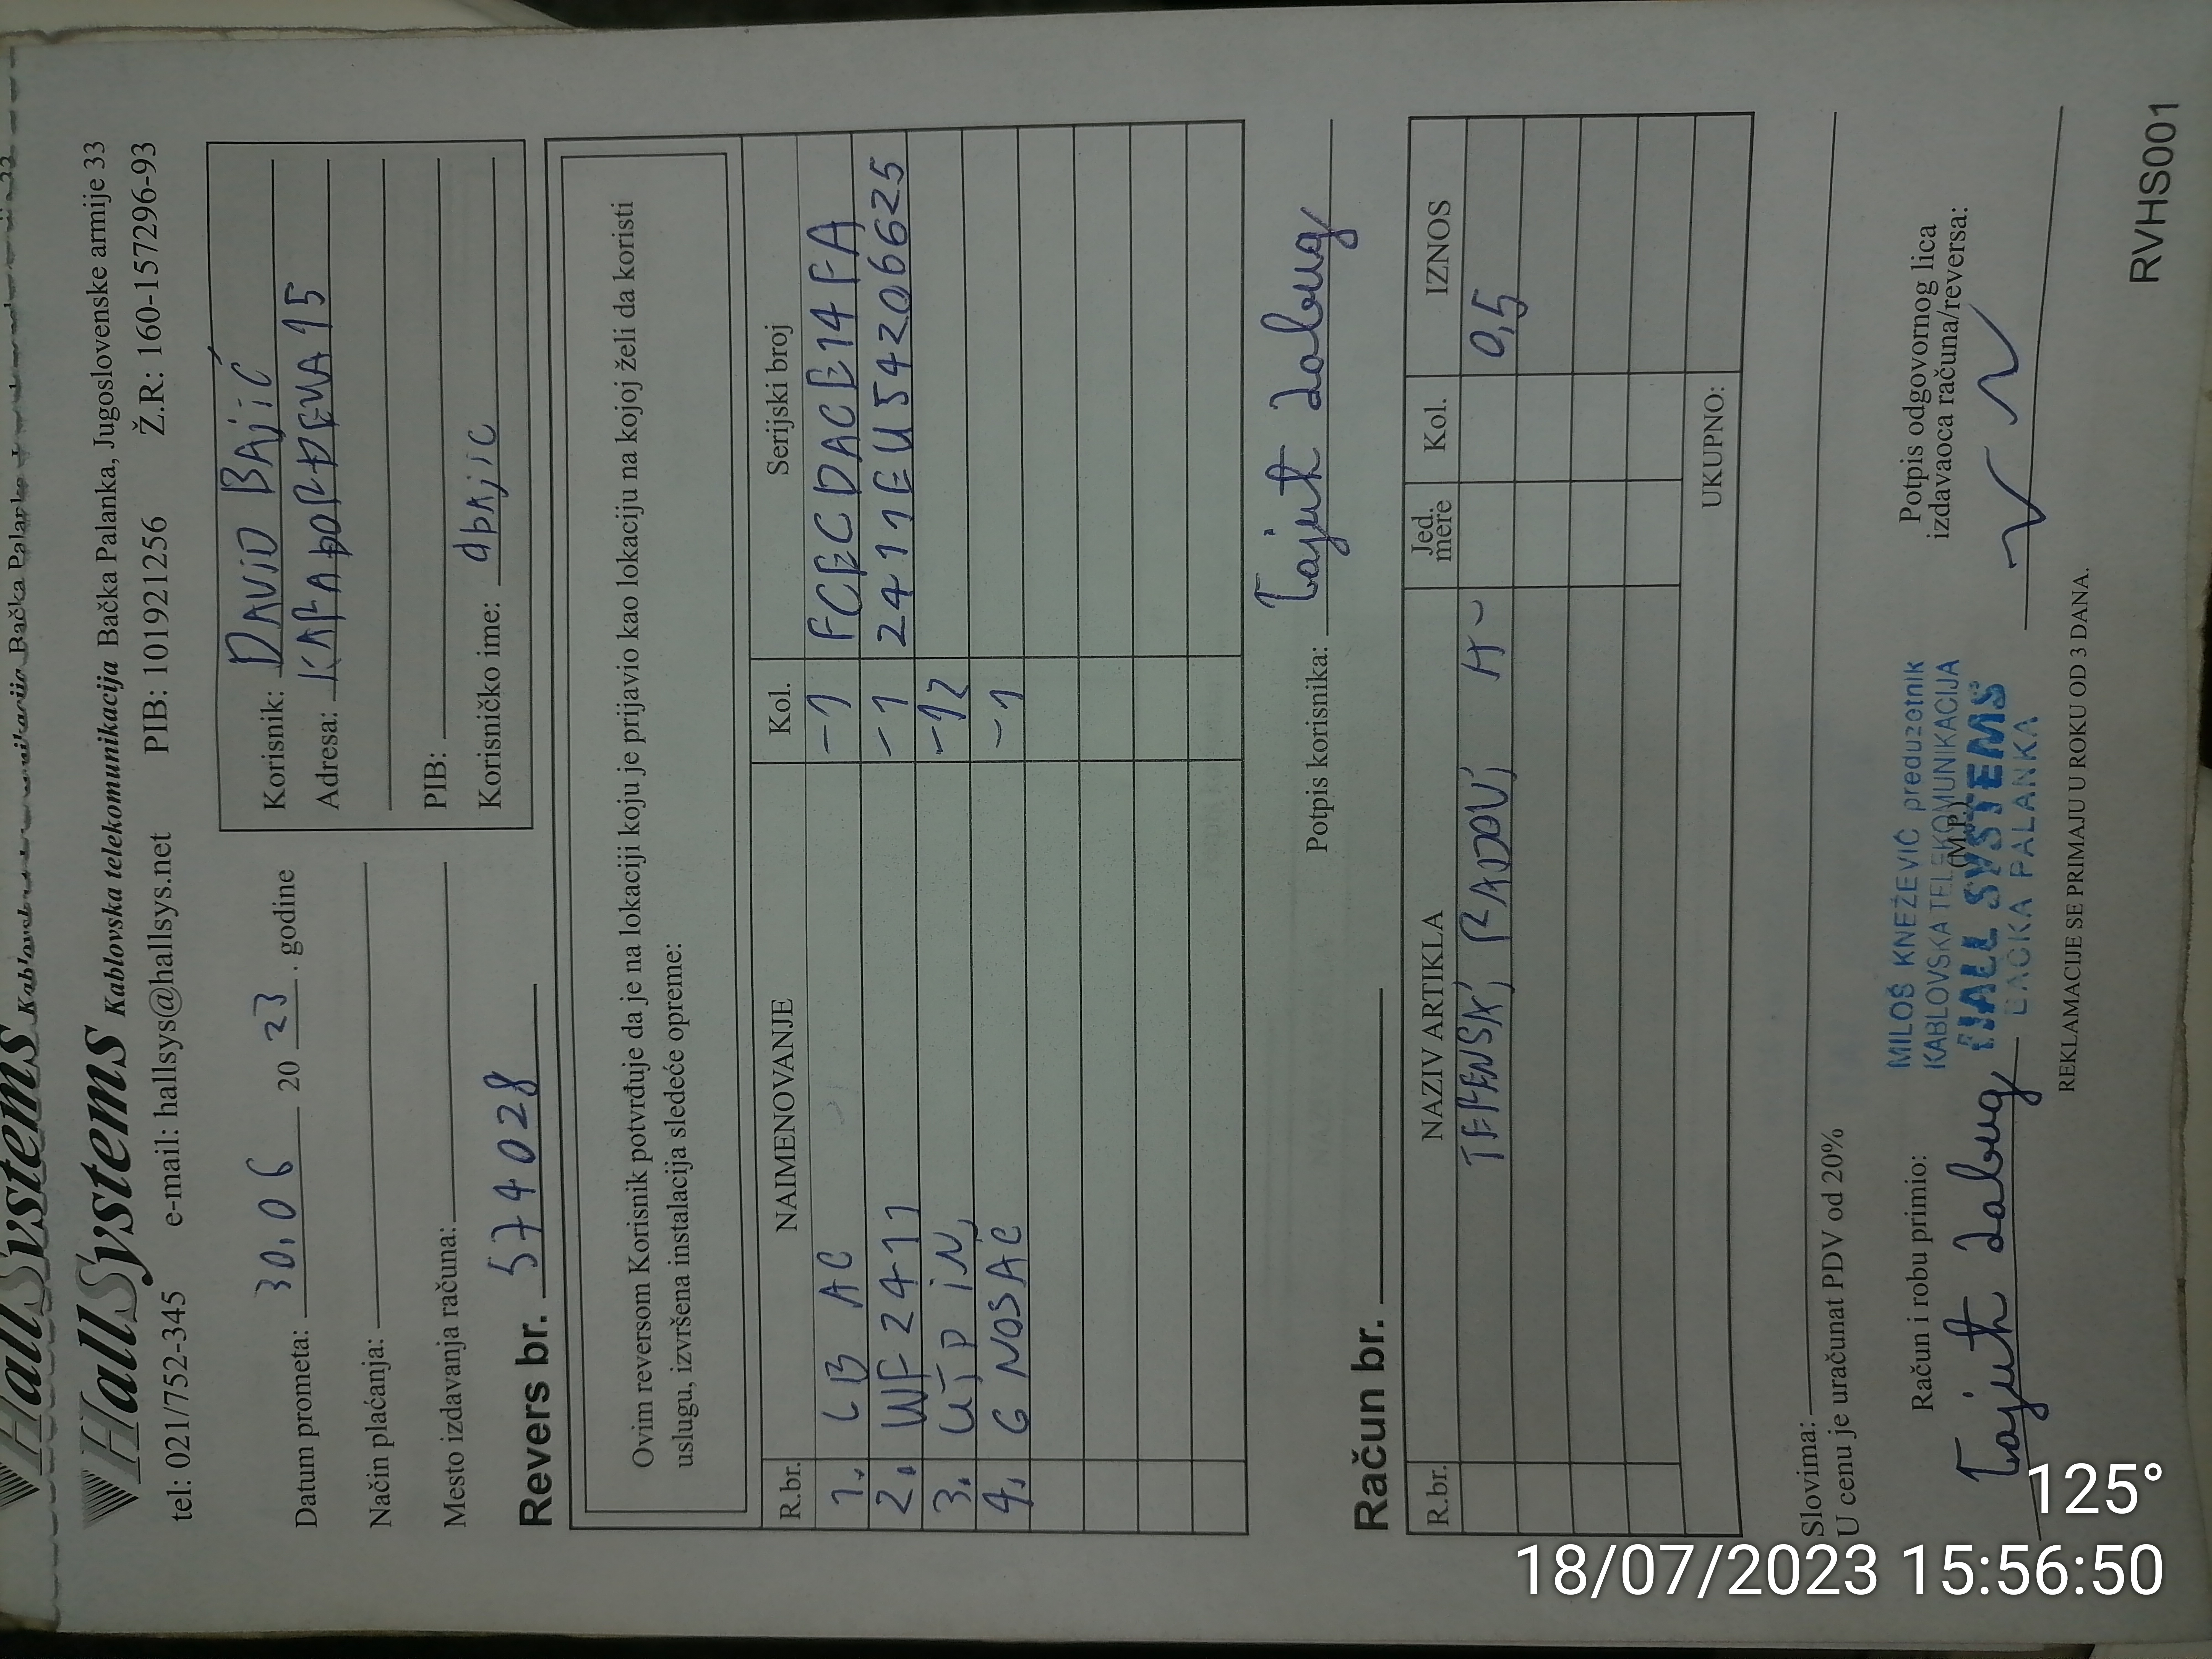 HallSystems Kablovska telekomunikacija Bačka Palanka, Jugoslovenske armije 33
tel: 021/752-345 e-mail: hallsys@hallsys.net PIB: 101921256 Ž.R: 160-157296-93
Datum prometa: 30.06 20 23. godine
Način plaćanja:
Mesto izdavanja računa:
Korisnik: DAVID BAJIĆ
Adresa: KARAĐORĐEVA 15
PIB:
Korisničko ime: dbajic
Revers br. 574028
Ovim reversom Korisnik potvrđuje da je na lokaciji koju je prijavio kao lokaciju na kojoj želi da koristi
uslugu, izvršena instalacija sledeće opreme:
R.br. NAIMENOVANJE Kol. Serijski broj
1. LB AC -1 FCECDACE14FA
2. WF2411 -1 2411EU542066625
3. UTP IN, -12
4. G NOSAČ -1
Potpis korisnika:
Račun br.
R.br. NAZIV ARTIKLA Jed. mere Kol. IZNOS
TERENSKI RADOVI H- 0,5
UKUPNO:
Slovima:
U cenu je uračunat PDV od 20%
Račun i robu primio:
MILOŠ KNEŽEVIĆ preduzetnik
KABLOVSKA TELEKOMUNIKACIJA
(M.P.)
HALL SYSTEMS
BAČKA PALANKA
Potpis odgovornog lica
izdavaoca računa/reversa:
REKLAMACIJE SE PRIMAJU U ROKU OD 3 DANA.
RVHS001
125°
18/07/2023 15:56:50